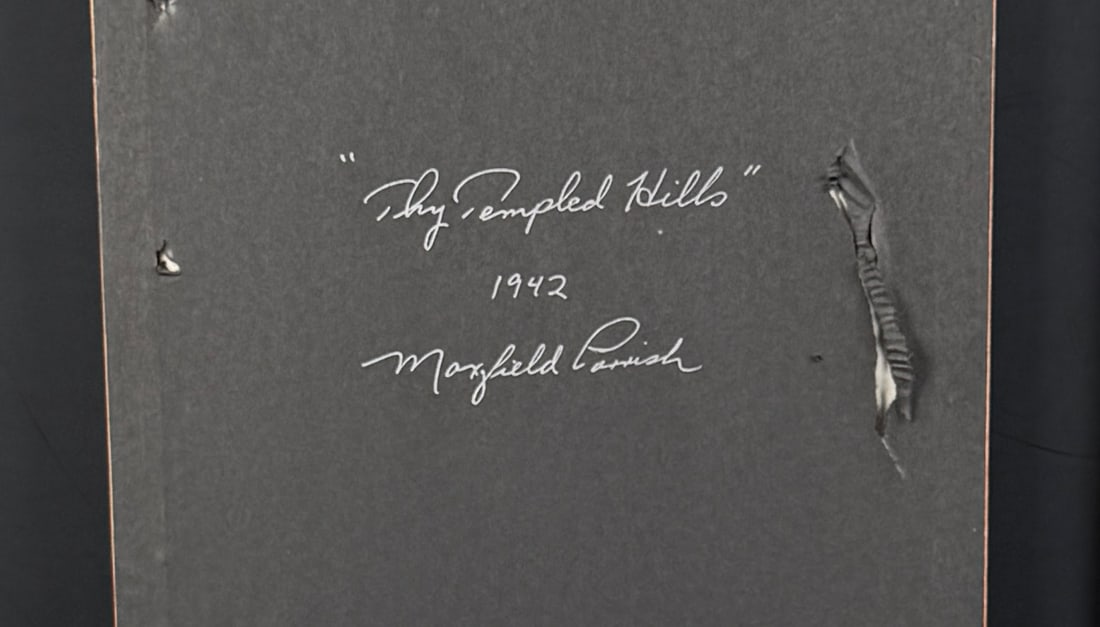 "Thy Templed Hills"
1942
Maxfield Parrish